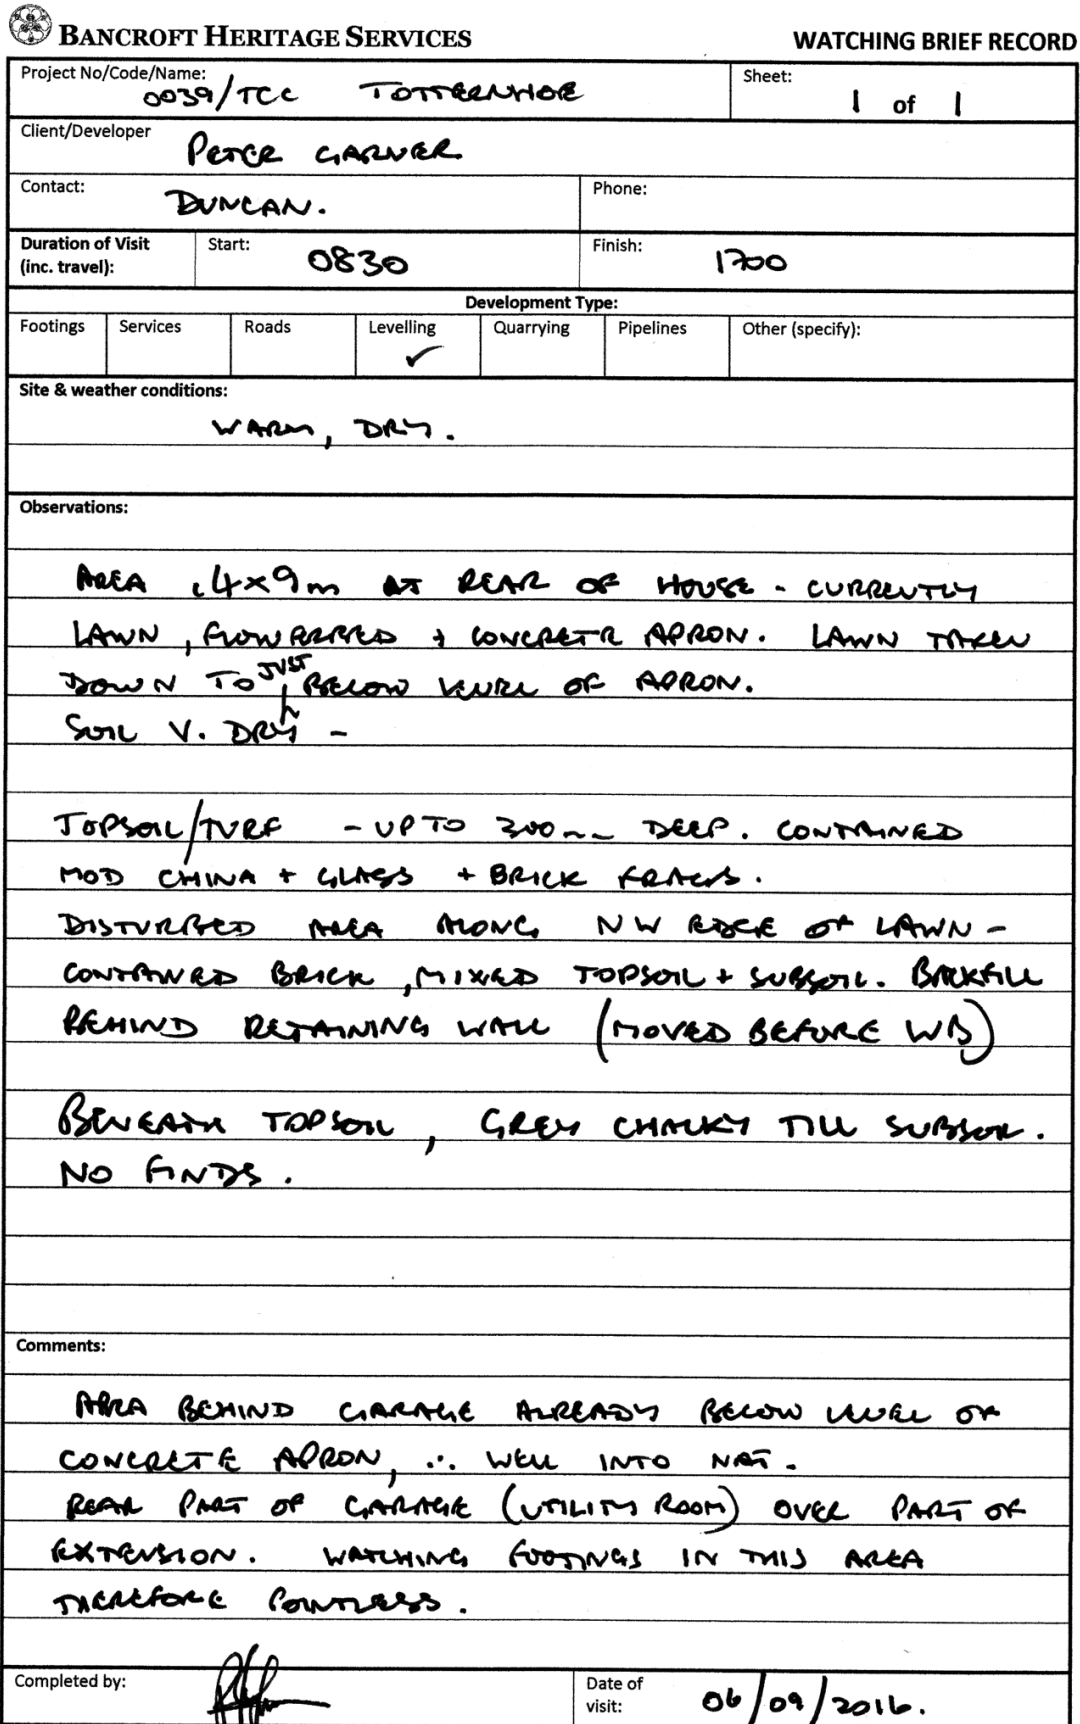 BANCROFT HERITAGE SERVICES
WATCHING BRIEF RECORD
Project No/Code/Name:
0039/TCC TOTTERNHOE
Sheet:
1 of 1
Client/Developer
PETER GARNER
Contact:
DUNCAN.
Phone:
Duration of Visit
(inc. travel):
Start:
0830
Finish:
1700
Development Type:
Footings Services Roads Levelling Quarrying Pipelines Other (specify):
✓
Site & weather conditions:
WARM, DRY.
Observations:
AREA c4x9m AT REAR OF HOUSE - CURRENTLY
LAWN, FLOWERBED + CONCRETE APRON. LAWN TAKEN
DOWN TO JUST BELOW LEVEL OF APRON.
SOIL V. DRY -
TOPSOIL/TURF - UP TO 300mm DEEP. CONTAINED
MOD CHINA + GLASS + BRICK FRAGS.
DISTURBED AREA ALONG NW EDGE OF LAWN -
CONTAINED BRICK, MIXED TOPSOIL + SUBSOIL. BACKFILL
BEHIND RETAINING WALL (MOVED BEFORE WB)
BENEATH TOPSOIL, GREY CHALKY TILL SUBSOIL.
NO FINDS.
Comments:
AREA BEHIND GARAGE ALREADY BELOW LEVEL OF
CONCRETE APRON, ∴ WELL INTO NAT.
REAR PART OF GARAGE (UTILITY ROOM) OVER PART OF
EXTENSION. WATCHING FOOTINGS IN THIS AREA
THEREFORE POINTLESS.
Completed by:
Date of
visit:
06/09/2016.